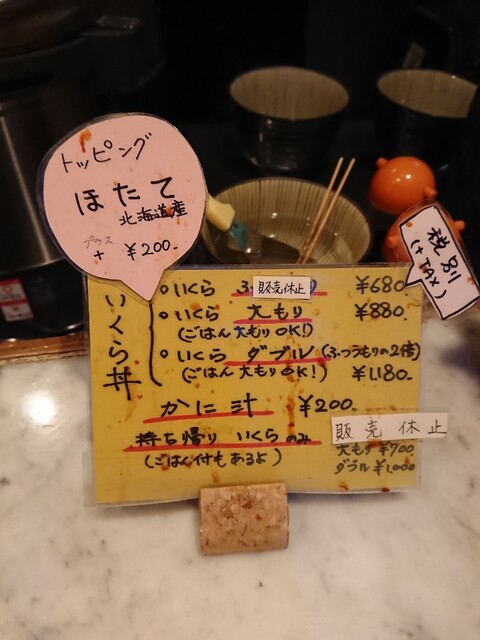 トッピング
ほたて
北海道産
プラス
+ ¥200-
税別
(+TAX)
いくら丼
いくら 販売休止 ¥680
いくら 大もり ¥880-
(ごはん大もりOK!)
いくら ダブル(ふつうもりの2倍)
(ごはん大もりOK!) ¥1180-
かに汁 ¥200-
持ち帰り いくらのみ 販売休止
(ごはん付もあるよ) 大もり ¥700
ダブル ¥1,000